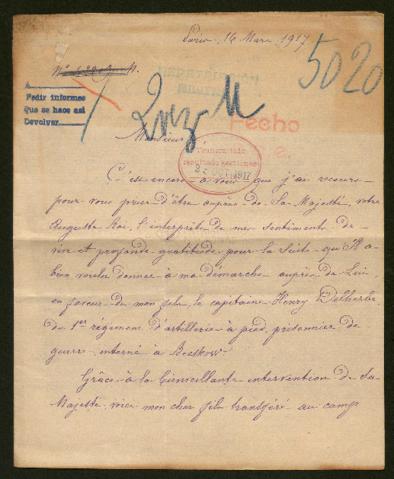 Paris, 16 Mars 1917
5020
Pedir informes
Que se hace así
Devolver
Fecho
Monsieur
Transmitido
1917
C'est encore à vous que j'ai recours
pour vous prier d'être auprès de Sa Majesté, votre
Auguste Roi, l'interprète de mes sentiments de
vive et profonde gratitude pour la Suite qu'Il a
bien voulu donner à ma démarche auprès de Lui
en faveur de mon fils, le capitaine Henry
du 1er régiment d'artillerie à pied, prisonnier de
guerre interné à Beeskow
Grâce à la bienveillante intervention de Sa
Majesté, voici mon cher fils transféré au camp